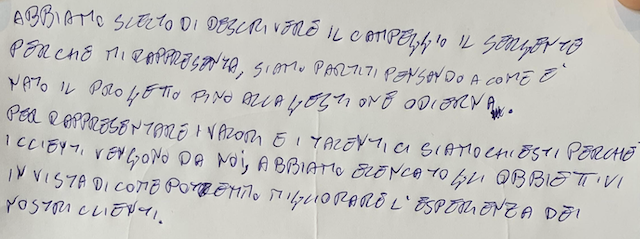 ABBIAMO SCELTO DI DESCRIVERE IL CAMPEGGIO IL SERGENTE
PERCHÉ MI RAPPRESENTA, SIAMO PARTITI PENSANDO A COME È
NATO IL PROGETTO FINO ALLA GESTIONE ODIERNA.
PER RAPPRESENTARE I VALORI E I TALENTI CI SIAMO CHIESTI PERCHÉ
I CLIENTI VENGONO DA NOI, ABBIAMO ELENCATO GLI OBBIETTIVI
IN VISTA DI COME POTREMMO MIGLIORARE L'ESPERIENZA DEI
NOSTRI CLIENTI.